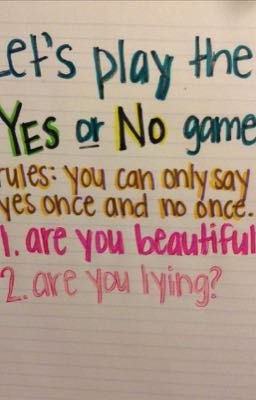 Let's play the
YES or NO game
rules: you can only say
yes once and no once.
1. are you beautiful
2. are you lying?